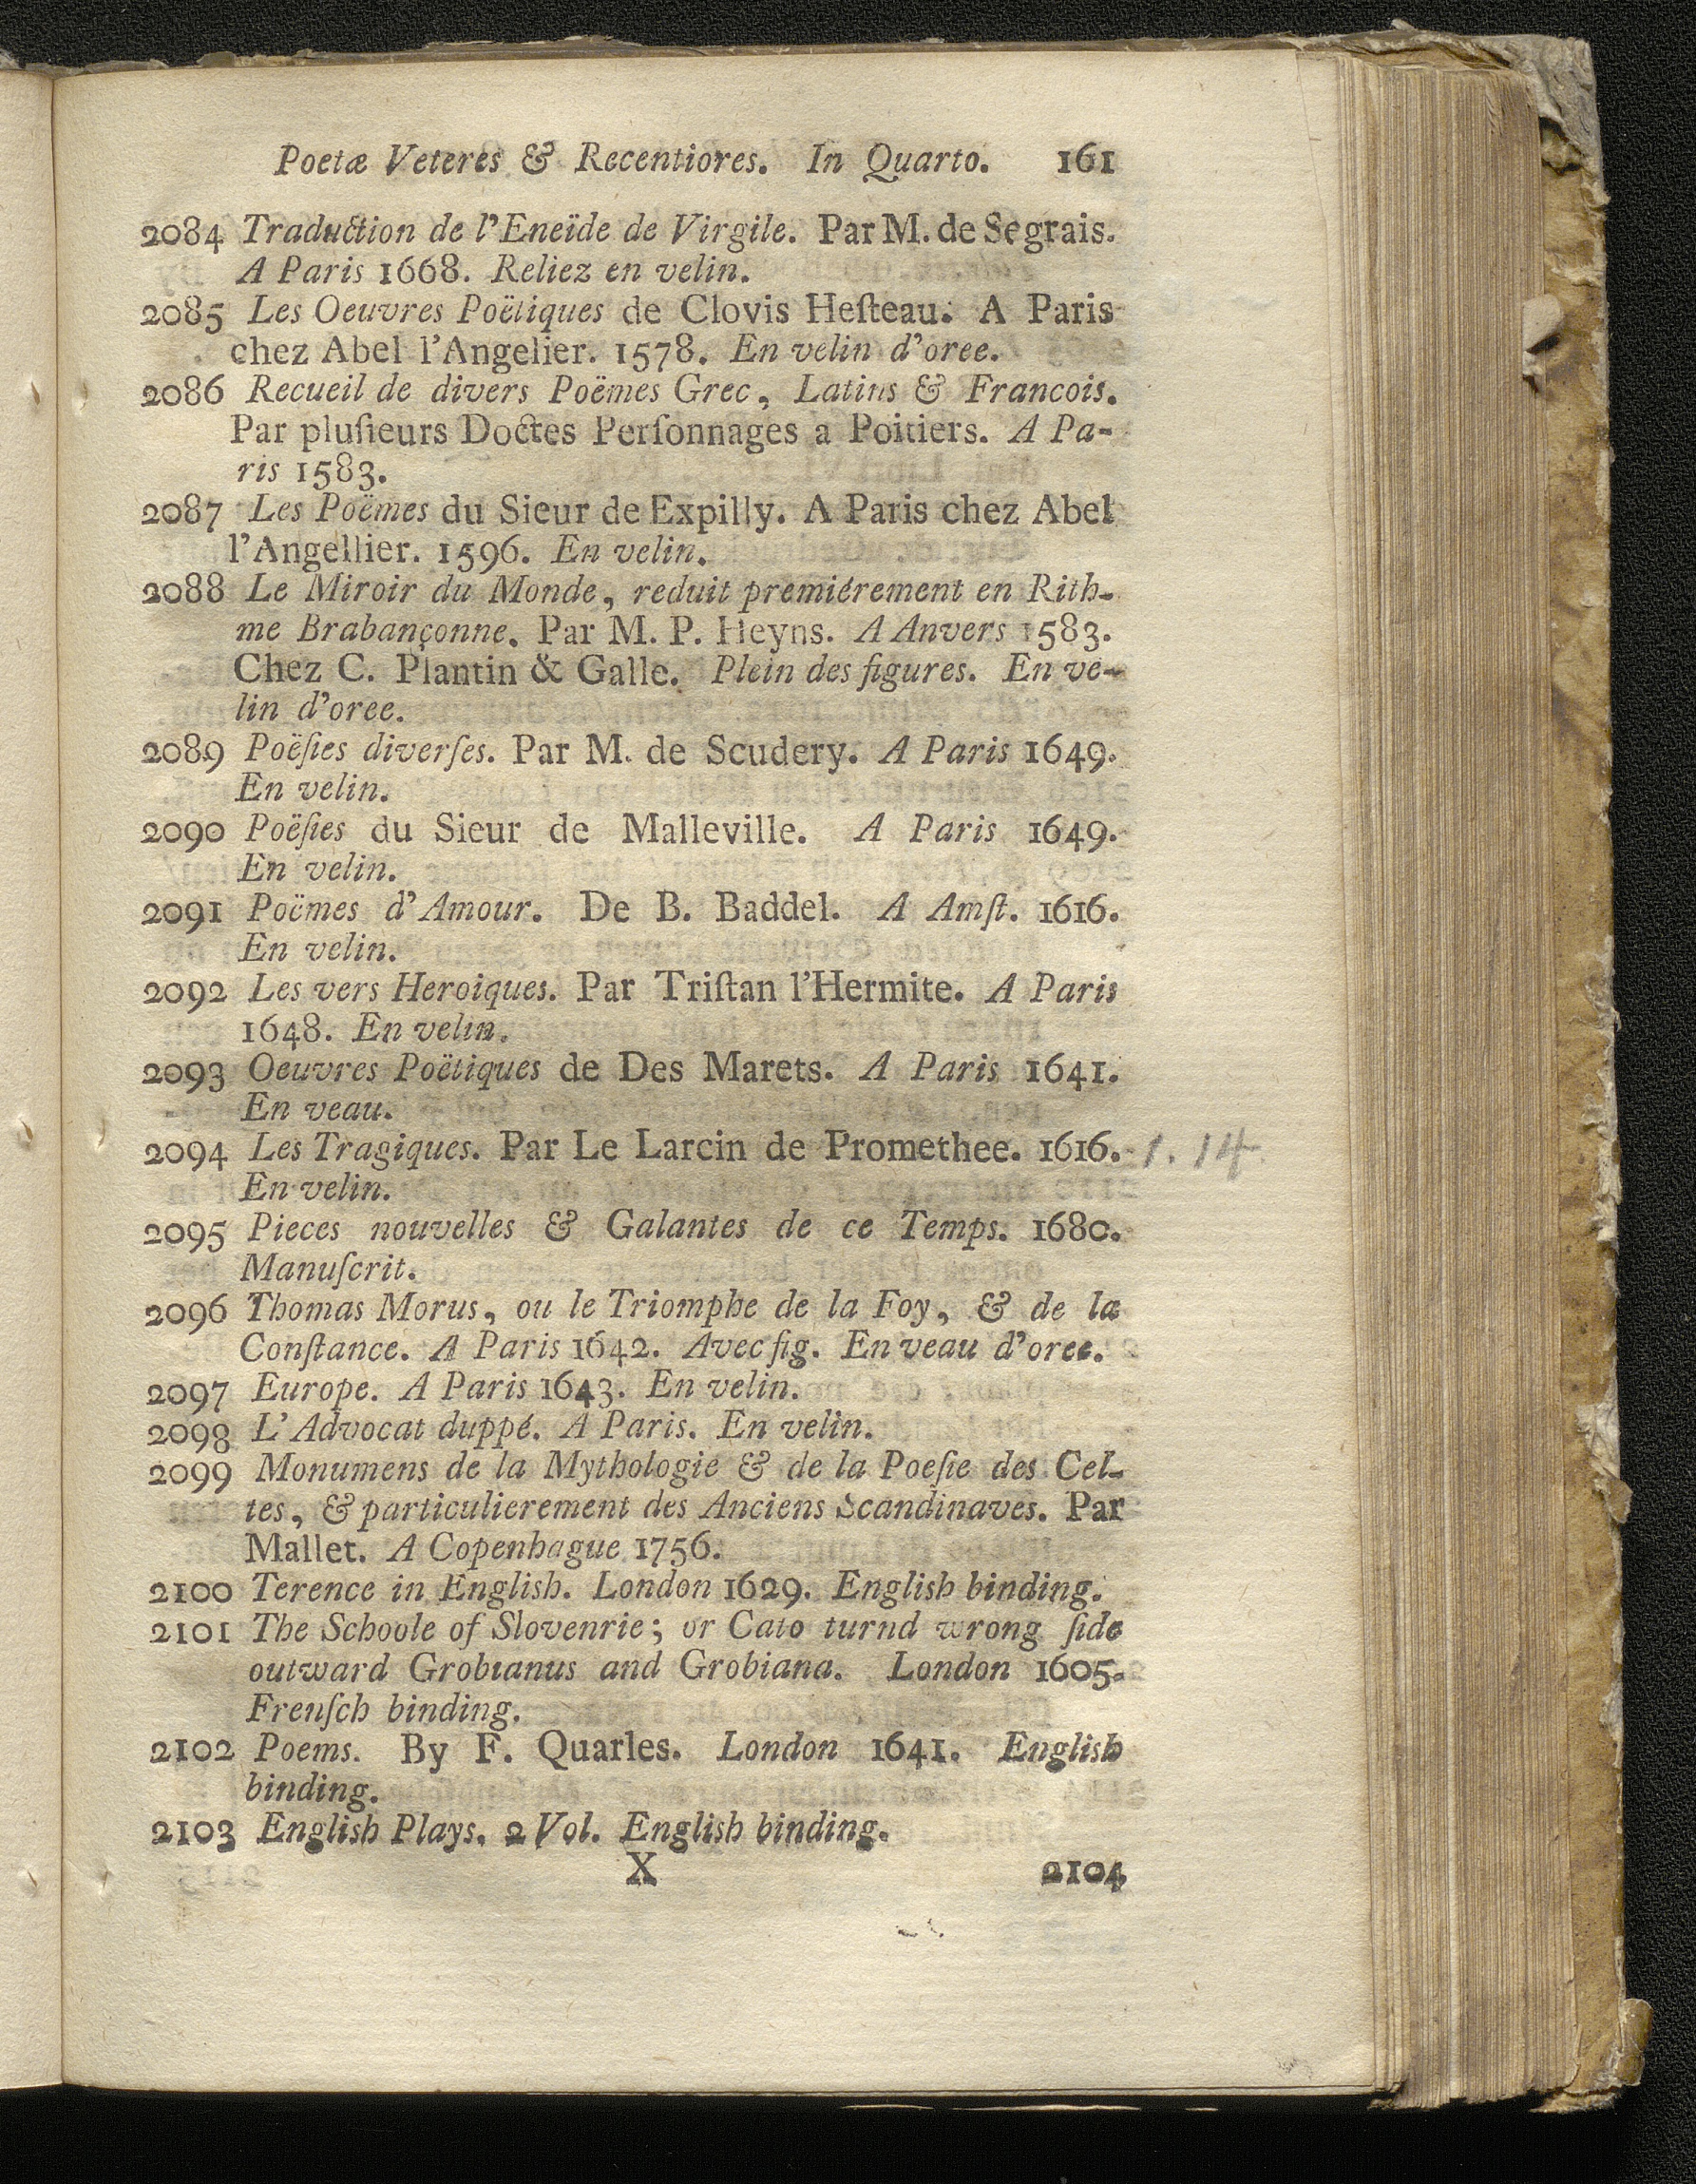 Poetæ Veteres & Recentiores. In Quarto. 161
2084 Traduction de l'Eneïde de Virgile. Par M. de Segrais.
A Paris 1668. Reliez en velin.
2085 Les Oeuvres Poëtiques de Clovis Heſteau. A Paris
chez Abel l'Angelier. 1578. En velin d'oree.
2086 Recueil de divers Poëmes Grec, Latins & Francois.
Par pluſieurs Doctes Perſonnages a Poitiers. A Pa-
ris 1583.
2087 Les Poëmes du Sieur de Expilly. A Paris chez Abel
l'Angellier. 1596. En velin.
2088 Le Miroir du Monde, reduit premiérement en Rith-
me Brabançonne. Par M. P. Heyns. A Anvers 1583.
Chez C. Plantin & Galle. Plein des figures. En ve-
lin d'oree.
2089 Poëſies diverſes. Par M. de Scudery. A Paris 1649.
En velin.
2090 Poëſies du Sieur de Malleville. A Paris 1649.
En velin.
2091 Poëmes d'Amour. De B. Baddel. A Amſt. 1616.
En velin.
2092 Les vers Heroiques. Par Triſtan l'Hermite. A Paris
1648. En velin.
2093 Oeuvres Poëtiques de Des Marets. A Paris 1641.
En veau.
2094 Les Tragiques. Par Le Larcin de Promethee. 1616. 1.14
En velin.
2095 Pieces nouvelles & Galantes de ce Temps. 1680.
Manuſcrit.
2096 Thomas Morus, ou le Triomphe de la Foy, & de la
Conſtance. A Paris 1642. Avec fig. En veau d'oree.
2097 Europe. A Paris 1643. En velin.
2098 L'Advocat duppé. A Paris. En velin.
2099 Monumens de la Mythologie & de la Poeſie des Cel-
tes, & particulierement des Anciens Scandinaves. Par
Mallet. A Copenhague 1756.
2100 Terence in English. London 1629. English binding.
2101 The Schoole of Slovenrie; or Cato turnd wrong ſide
outward Grobianus and Grobiana. London 1605.
Frenſch binding.
2102 Poems. By F. Quarles. London 1641. English
binding.
2103 English Plays. 2 Vol. English binding.
X 2104